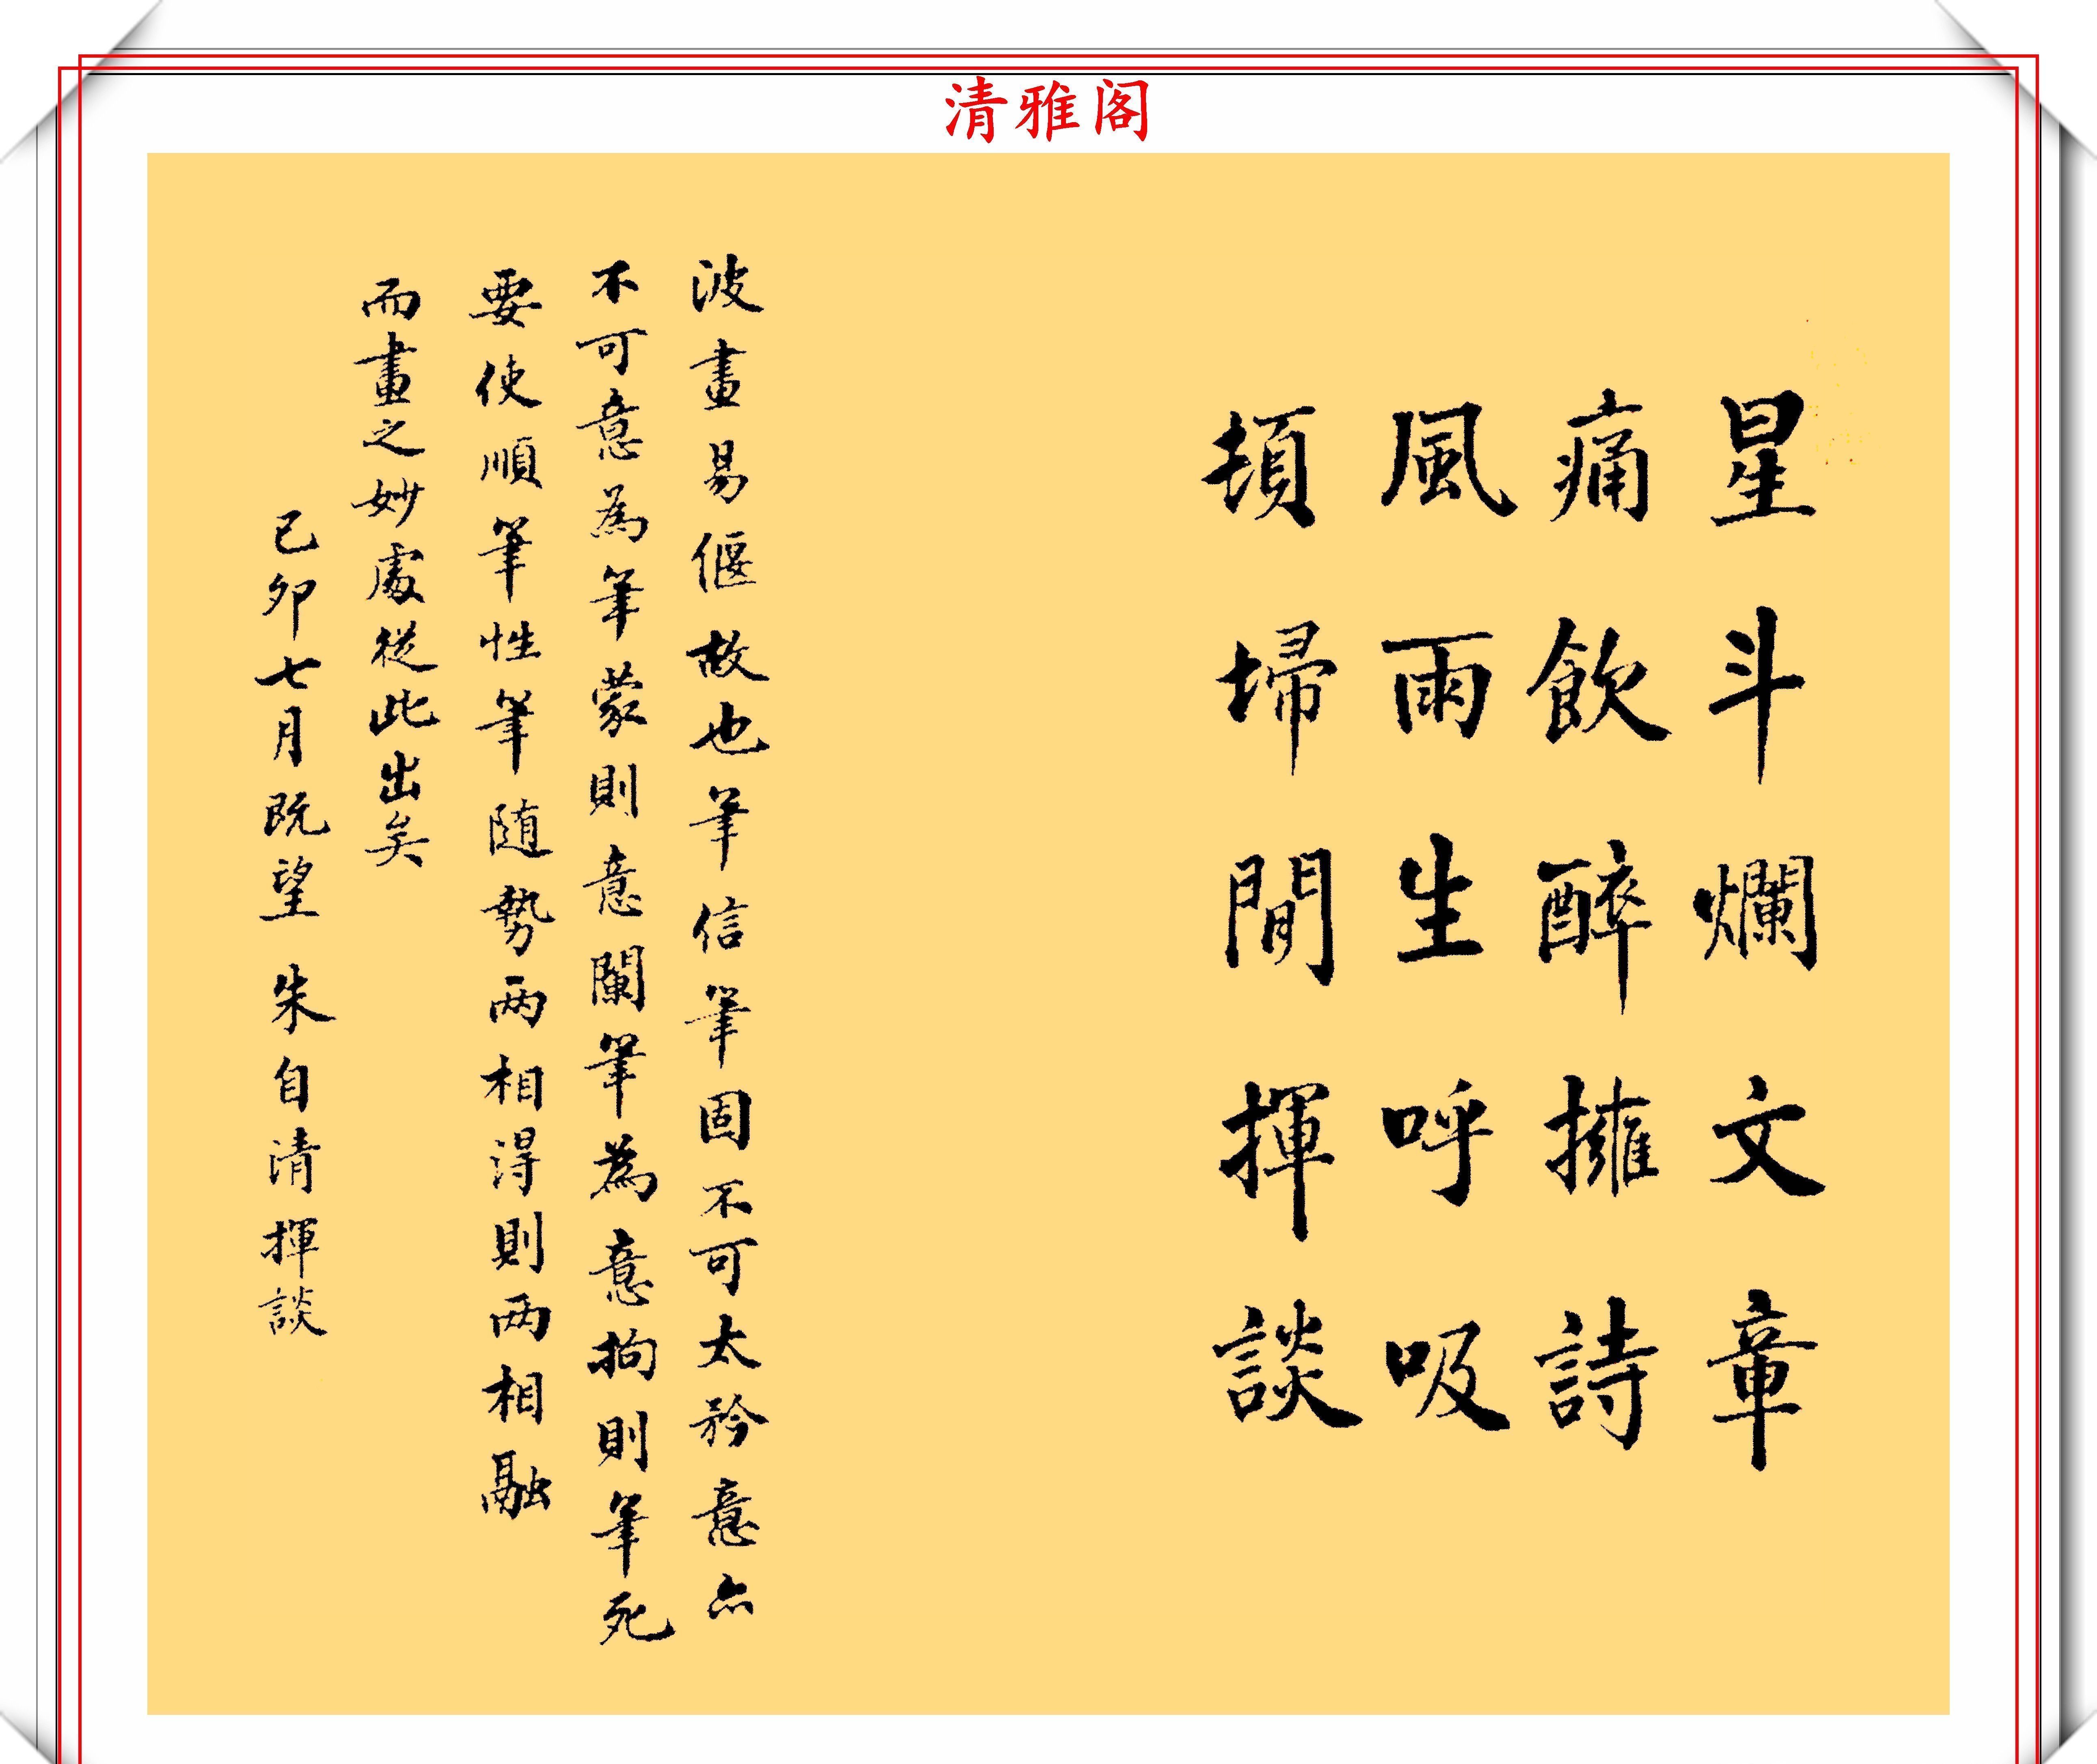 清雅阁
星斗爛文章
痛飲醉擁詩
風雨生呼吸
頓埽閒揮談
波畫易偃故也筆信筆固不可太矜意亦
不可意為筆蒙則意闌筆為意拘則筆死
要使順筆性筆隨勢两相得則两相融
而畫之妙處從此出矣
己卯七月既望 朱自清揮談